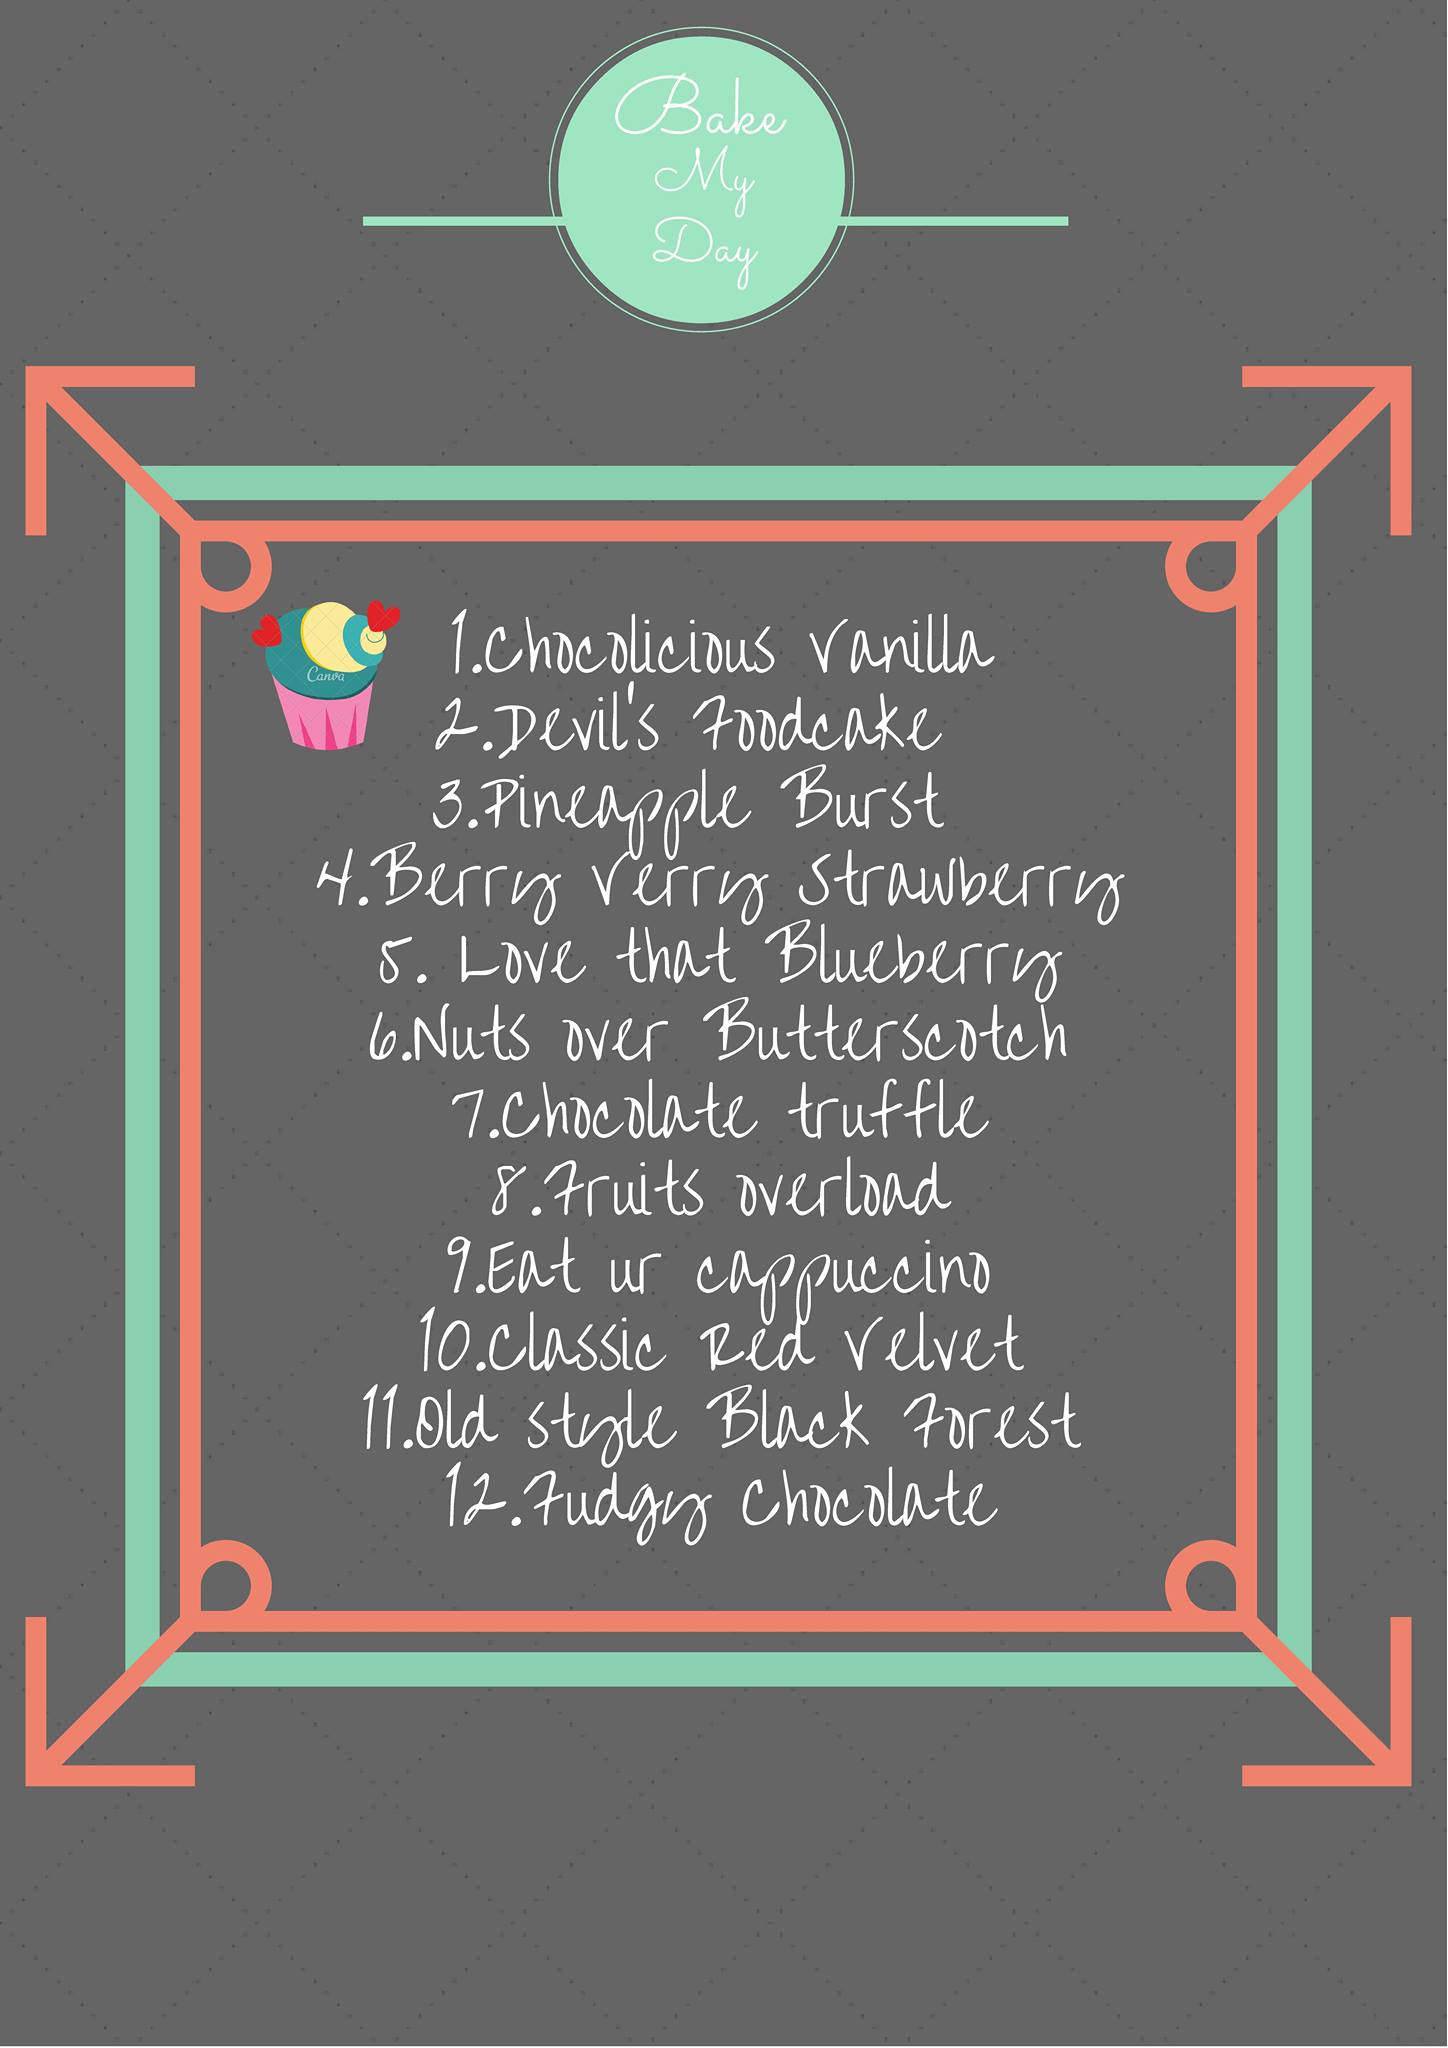 Bake
My
Day
1.Chocolicious Vanilla
Canva
2.Devil's Foodcake
3.Pineapple Burst
4.Berry Verry Strawberry
5. Love that Blueberry
6.Nuts over Butterscotch
7.Chocolate truffle
8.Fruits overload
9.Eat ur cappuccino
10.Classic Red Velvet
11.Old style Black Forest
12.Fudgy Chocolate